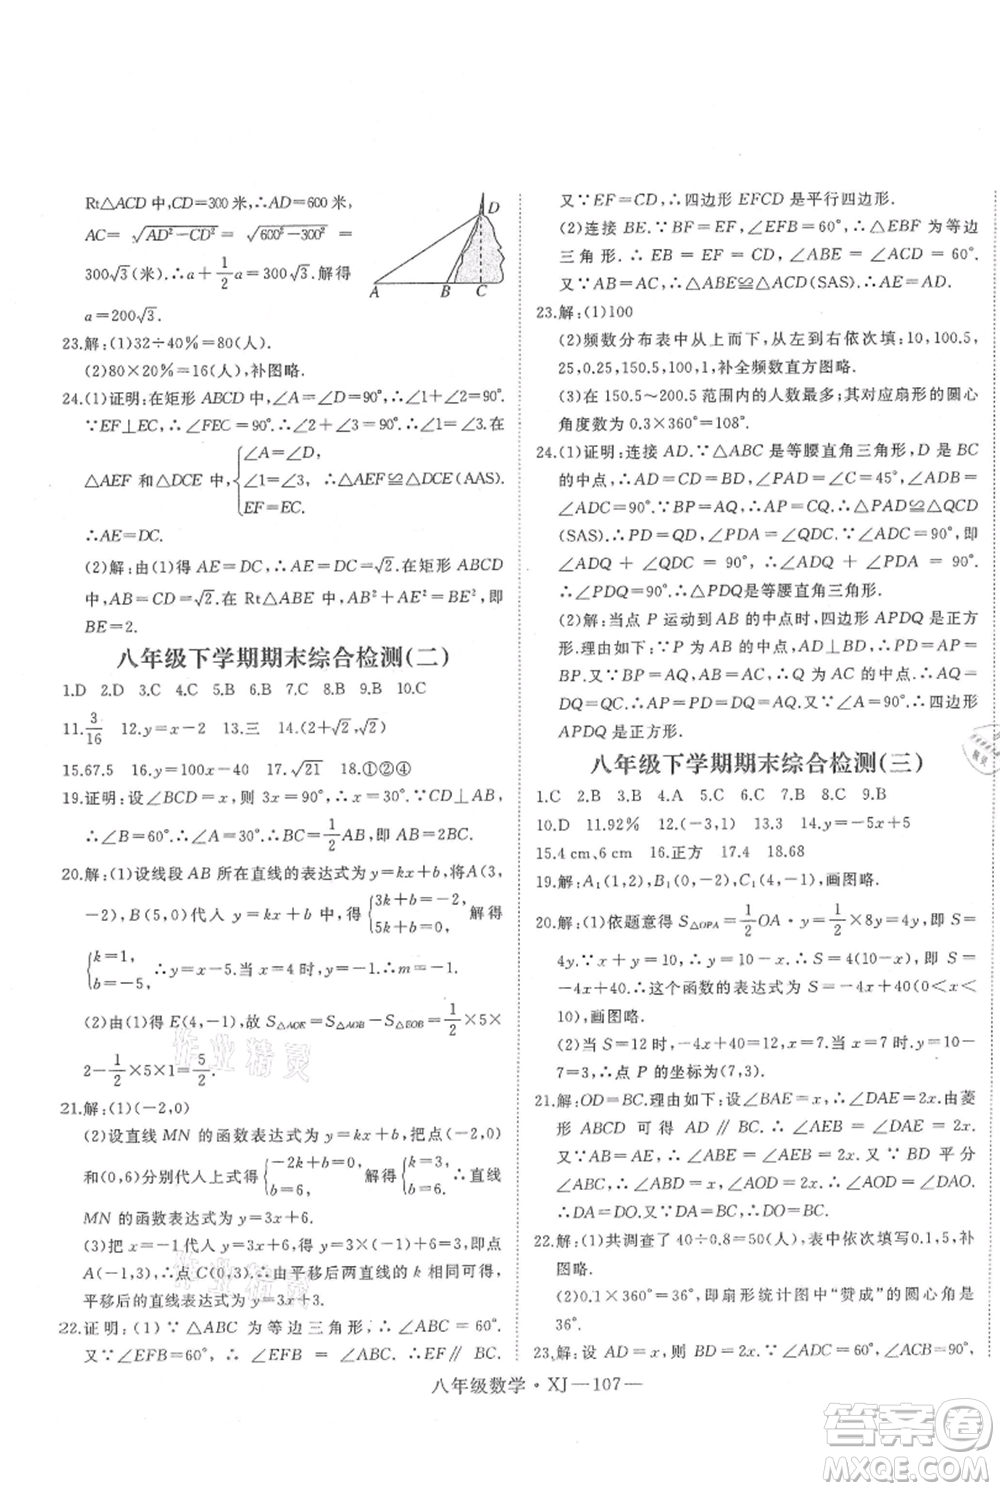 Rt△ACD 中,CD=300 米,∴AD=600 米.
AC=√(AD²−CD²)=√(600²−300²)=
300√3(米).∴a+1/2a=300√3.解得
a=200√3.
D
A B C
23.解:(1)32÷40%=80(人).
(2)80×20%=16(人),补图略.
24.(1)证明:在矩形 ABCD 中,∠A=∠D=90°,∴∠1+∠2=90°.
∵EF⊥EC,∴∠FEC=90°.∴∠2+∠3=90°.∴∠1=∠3.在
△AEF 和△DCE 中,{∠A=∠D, ∠1=∠3, EF=EC. ∴△AEF≌△DCE(AAS).
∴AE=DC.
(2)解:由(1)得 AE=DC,∴AE=DC=√2.在矩形 ABCD
中,AB=CD=√2.在 Rt△ABE 中,AB²+AE²=BE²,即
BE=2.
八年级下学期期末综合检测(二)
1.D 2.D 3.C 4.C 5.B 6.B 7.C 8.B 9.B 10.C
11.3/16 12.y=x−2 13.三 14.(2+√2,√2)
15.67.5 16.y=100x−40 17.√21 18.①②④
19.证明:设∠BCD=x,则 3x=90°.∴x=30°.∵CD⊥AB,
∴∠B=60°.∴∠A=30°.∴BC=1/2AB.
20.解:(1)设线段 AB 所在直线的表达式为 y=kx+b,将 A(3,
−2),B(5,0)代入 y=kx+b 中,得{3k+b=−2, 5k+b=0. 解得
{k=1, b=−5. ∴y=x−5.当 x=4 时,y=−1.∴m=−1.
(2)由(1)得 E(4,−1),故 S△AOE=S△AOB−S△EOB=1/2×5×
2−1/2×5×1=5/2.
21.解:(1)(−2,0)
(2)设直线 MN 的函数表达式为 y=kx+b,把点(−2,0)
和(0,6)分别代入上式,得{−2k+b=0, b=6. 解得{k=3, b=6. ∴直线
MN 的函数表达式为 y=3x+6.
(3)把 x=−1 代入 y=3x+6,得 y=3×(−1)+6=3.即点
A(−1,3),∴点 C(0,3).∴由平移后两直线的 k 相同可得,
平移后的直线表达式为 y=3x+3.
22.证明:(1)∵△ABC 为等边三角形,∴∠ABC=60°.
又∵∠EFB=60°,∴∠EFB=∠ABC.∴EF∥BC.
又∵EF=CD,∴四边形 EFCD 是平行四边形.
(2)连接 BE.∵BF=EF,∠EFB=60°,∴△EBF 为等边
三角形.∴EB=EF=CD,∠ABE=∠ABC=60°.
又∵AB=AC,∴△ABE≌△ACD(SAS).∴AE=AD.
23.解:(1)100
(2)频数分布表中从上而下、从左到右依次填:10,100.5,
25,0.25,150.5,100,1,补全频数直方图略.
(3)在 150.5~200.5 范围内的人数最多;其对应扇形的圆心
角度数为 0.3×360°=108°.
24.(1)证明:连接 AD.∵△ABC 是等腰直角三角形,D 是 BC
的中点,∴AD=CD=BD,∠DAP=∠C=45°,∠ADB=
∠ADC=90°.∵BP=AQ,∴AP=CQ.∴△PAD≌△QCD
(SAS).∴PD=QD,∠PDA=∠QDC.∵∠ADC=90°,即
∠ADQ+∠QDC=90°,∴∠ADQ+∠PDA=90°.
∴∠PDQ=90°.∴△PDQ是等腰直角三角形.
(2)解:当点 P 运动到 AB 的中点时,四边形 APDQ 是正
方形.理由如下:∵P 为 AB 的中点,∴Q 是 AC 的中点.
又∵AB=AC,AD=BD=CD,∴DP⊥AB,DP=AP,
DQ=QC.∵AB=AC,∴AP=AQ=DP=DQ.∴四边形
APDQ 是正方形.
八年级下学期期末综合检测(三)
1.C 2.B 3.B 4.A 5.C 6.C 7.B 8.C 9.B
10.D 11.92% 12.(−3,1) 13.3 14.y=−5x+5
15.4 cm、6 cm 16.正方 17.4 18.68
19.解:A₁(1,2),B₁(3,1),C₁(4,−1),画图略.
20.解:(1)依题意得 S△OPA=1/2OA·y=1/2×8y=4y,即 S=
4y.∵x+y=10,∴y=10−x.∴S=4(10−x),即 S=
−4x+40.∴这个函数的表达式为 S=−4x+40(0<x<
10),画图略.
(2)当 S=12 时,12=−4x+40.∴x=7.当 x=7 时,y=10−
7=3.∴点 P 的坐标为(7,3).
21.解:OD=BC.理由如下:设∠DAE=2x,∠BAE=x.由菱
形 ABCD 可得 AD∥BC.∴∠AEB=∠DAE=2x.
又∵AB=AE,∴∠ABE=2x.又∵BD 平分
∠ABC,∴∠ABD=x.∴∠AOD=2x.∴∠AOD=∠DAO.
∴DA=DO.又∵DA=BC,∴DO=BC.
22.解:(1)共调查了 40÷0.8=50(人),表中依次填写 5,0.1,补
图略.
(2)0.1×360°=36°,即扇形统计图中“赞成”的圆心角是
36°.
23.解:设 AD=x,则 BD=4−x.∵∠ACB=90°,AC=
八年级数学·XJ—107—
作业精灵
作业精灵
答案圈
MXQE.COM